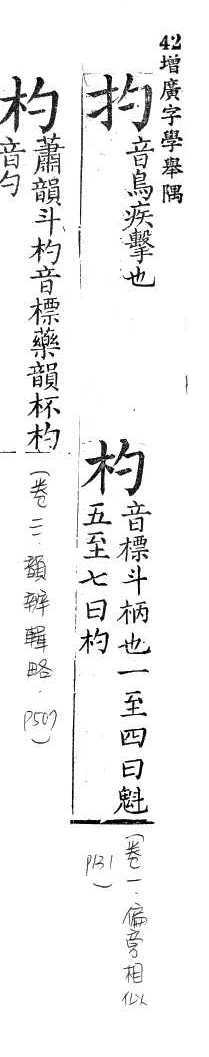 42增廣字學舉隅
扚
音鳥疾擊也
杓
音標斗柄也一至四曰魁
五至七曰杓
(卷一.偏旁相似
P131)
杓
蕭韻斗杓音標藥韻杯杓
音勺
(卷二.韻辨輯略.P507)